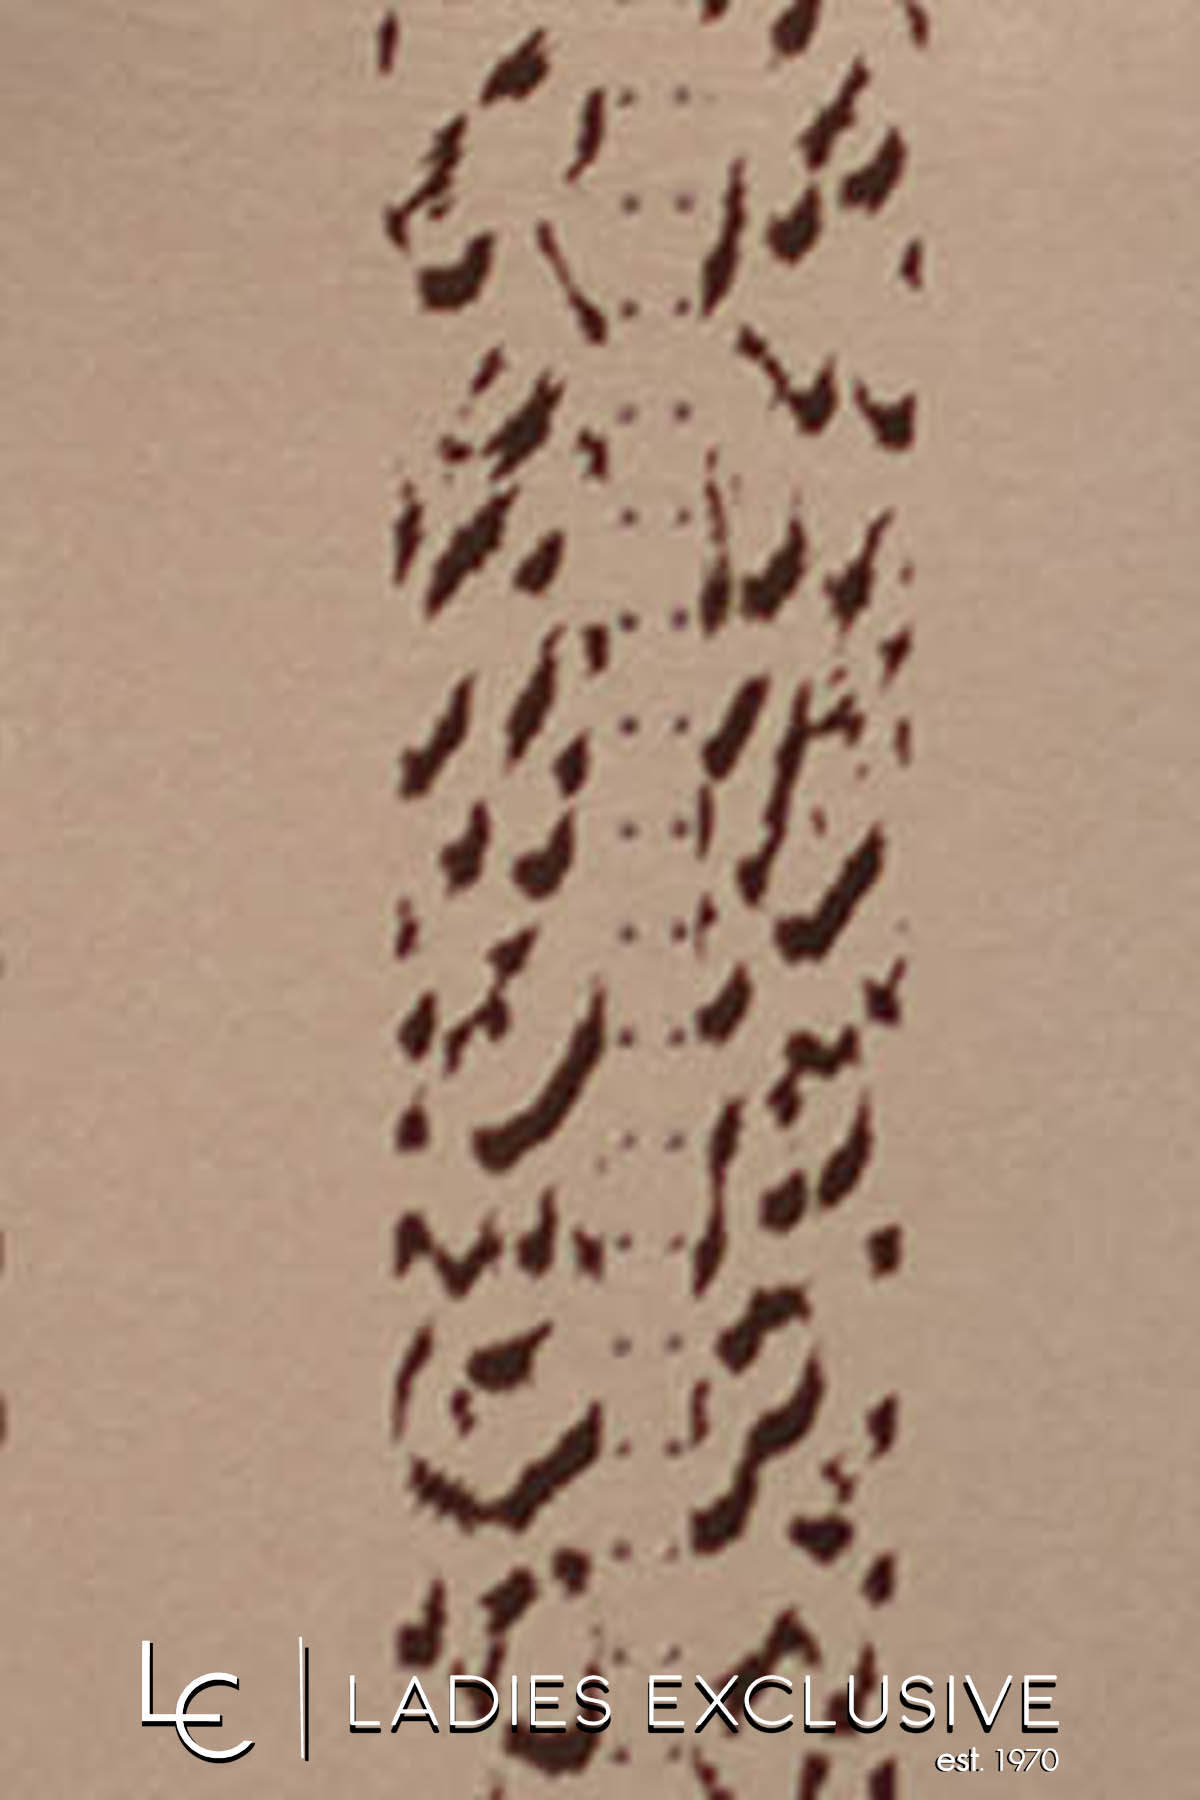 LC | LADIES EXCLUSIVE
est. 1970